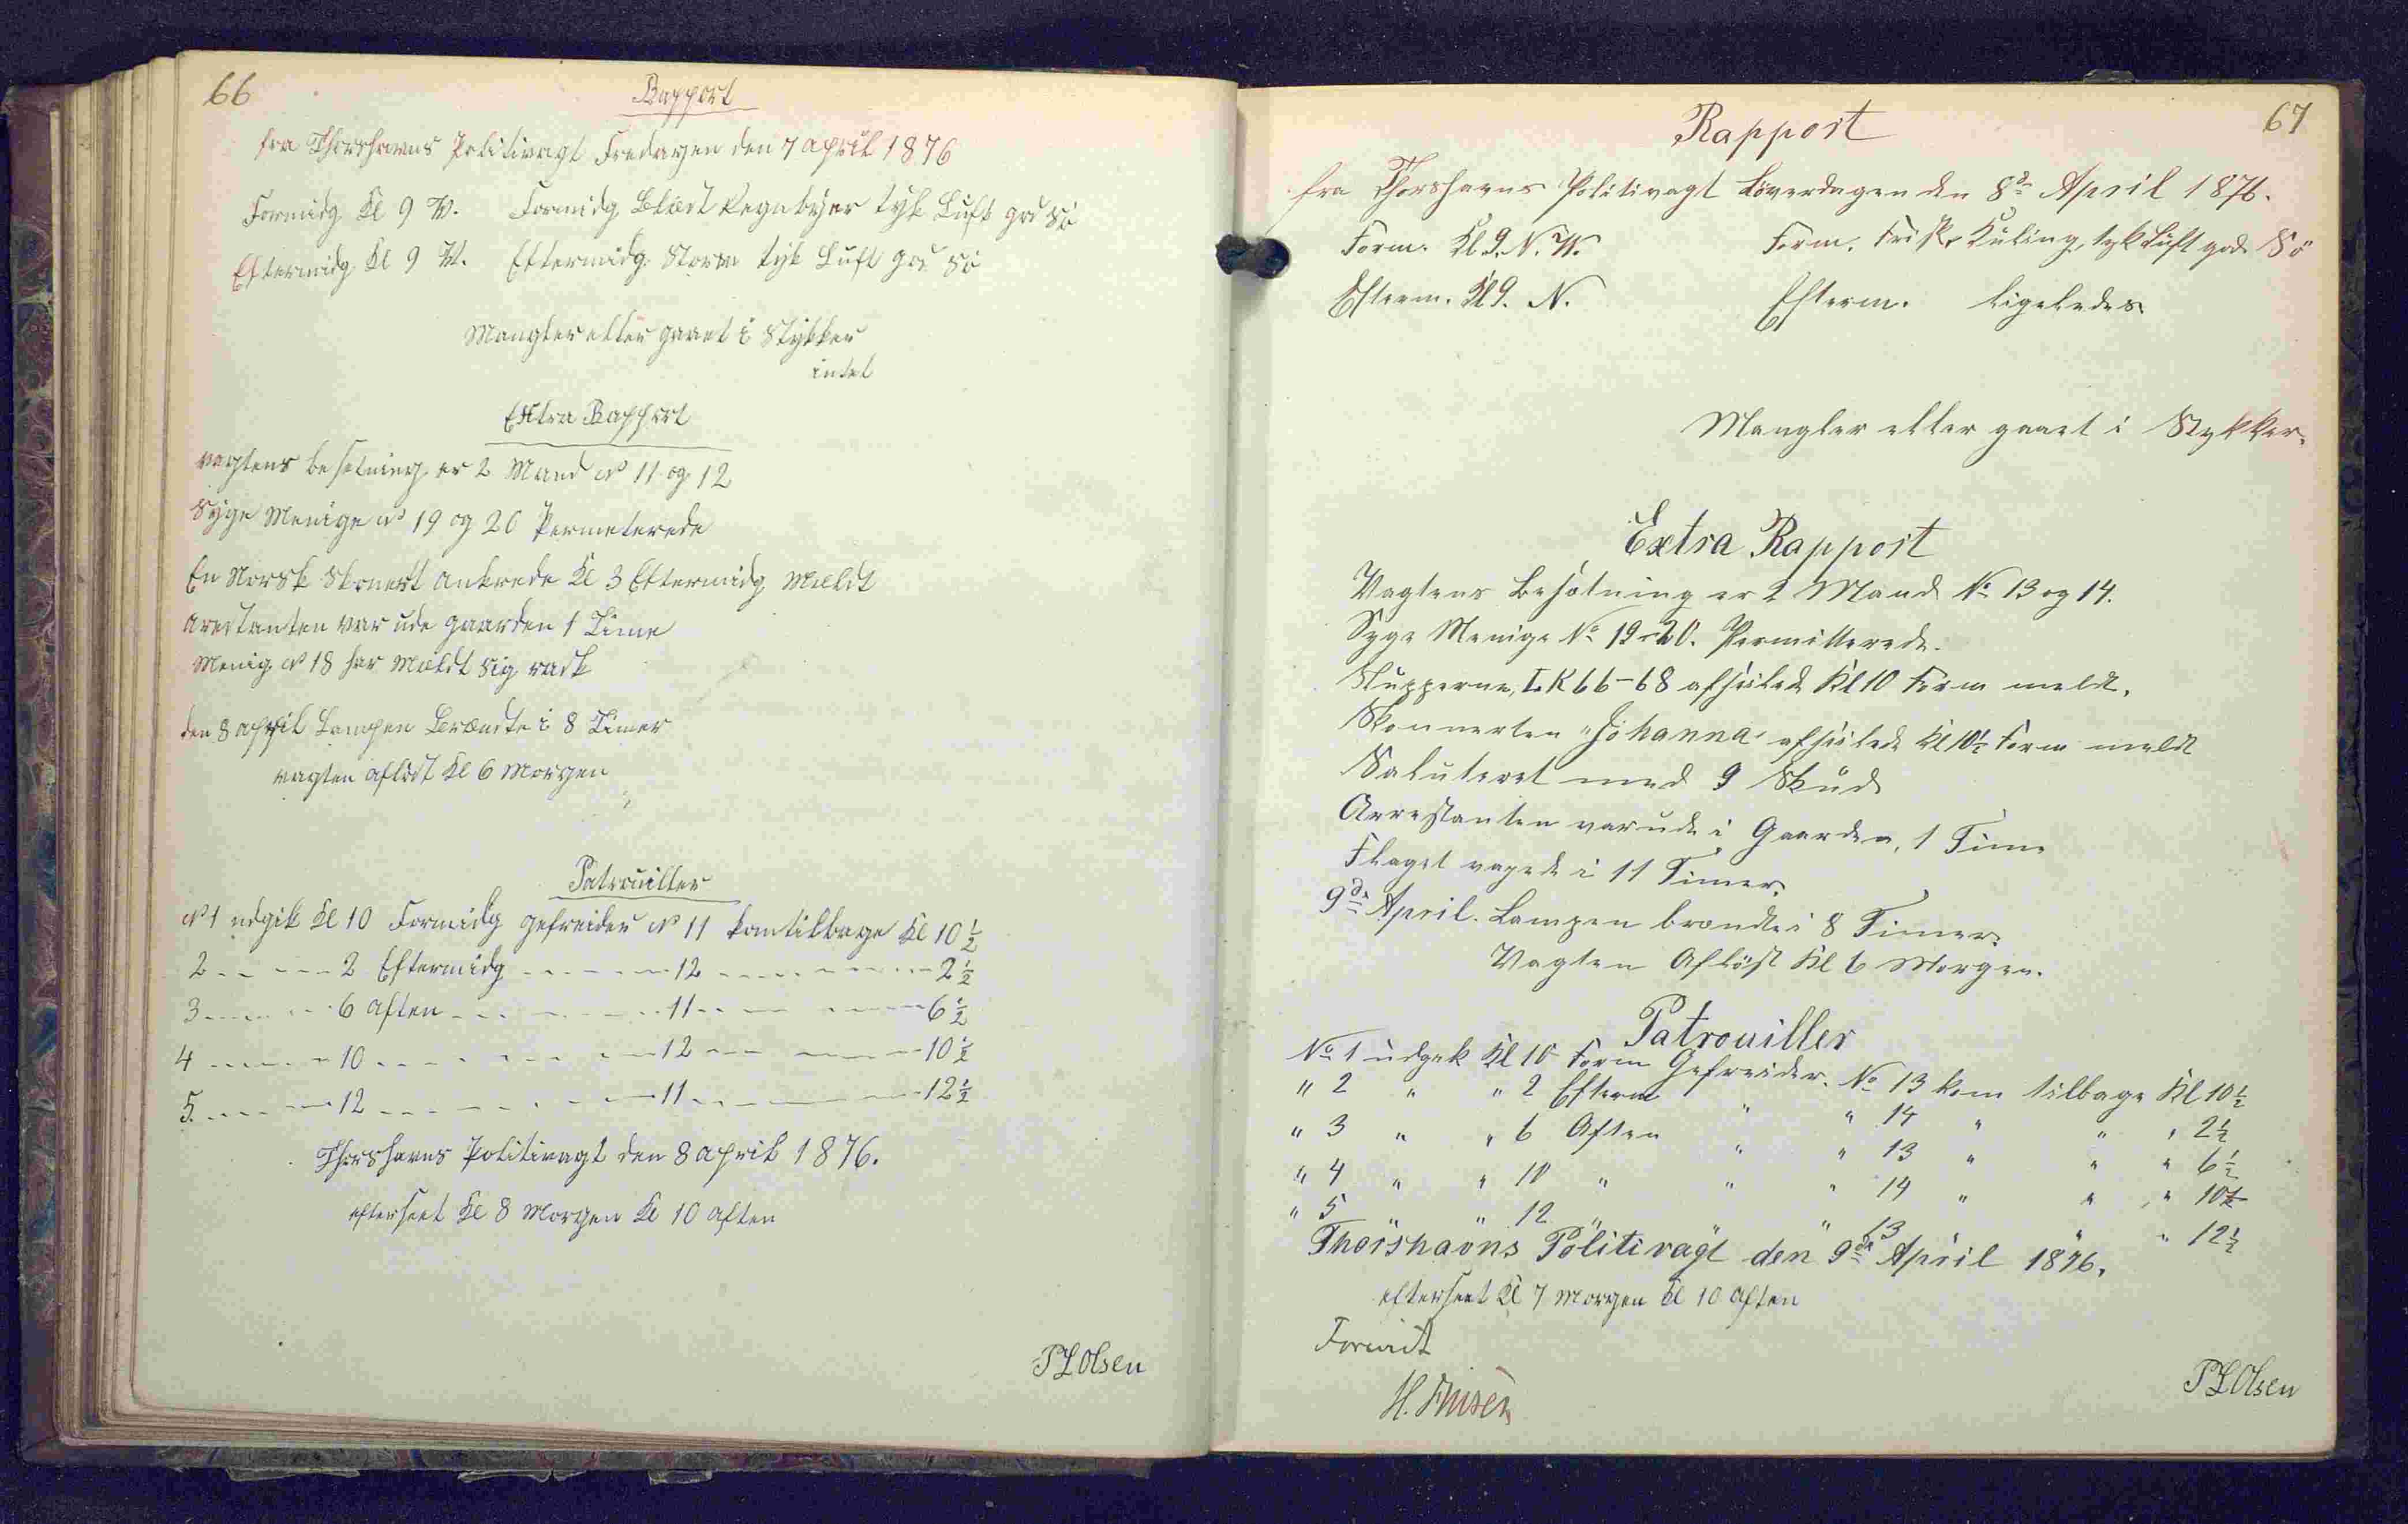 66
Rapport
fra Thorshavns Politivagt Fredagen den 7 april 1876
Formidg Kl 9 V. Formidg Blæst Regnbyer tyk Luft god Sö
Eftermidg Kl 9 V. Eftermidg Storm tyk Luft god Sö
Mangler eller gaaet i Stykker
intet
Extra Rapport
vagtens besetning er 2 Mand No 11 og 12
Syge Menige No 19 og 20 Permeterede
En Norsk Skonert ankrede Kl 3 Eftermidg Mældt
arestanten var ude gaarden 1 Time
Menig No 18 har Mældt sig rask
den 8 april Lampen Brændte i 8 Timer
vagten aflöst Kl 6 Morgen
Patrouiller
No 1 udgik Kl 10 Formidg gefreider No 11 kom tilbage Kl 10 1/2
2 - - - - 2 Eftermidg - - - - - 12 - - - - - - - - 2 1/2
3 - - - - 6 aften - - - - - - 11 - - - - - - - 6 1/2
4 - - - - 10 - - - - - - - 12 - - - - - - 10 1/2
5 - - - - 12 - - - - - - - 11 - - - - - - 12 1/2
Thorshavns Politivagt den 8 april 1876.
efterseet Kl 8 Morgen Kl 10 aften
P L Olsen
67
Rapport
fra Thorshavns Politivagt Löverdagen den 8de April 1876.
Form. Kl. 9. N. W. Form. Frisk Kuling, tyk Luft god Sö
Efterm. Kl 9. N. Efterm. ligeledes
Mangler eller gaaet i Stykker.
Extra Rapport
Vagtens Besötning er 2 Mand No 13 og 14.
Syge Menige No 19 - 20. Permitterede.
Slupperne, T. K 66 - 68 afseilede Kl 10 Form meldt.
Skonnerten "Johanna" afseilede Kl 10 1/2 Form meldt
Saluteret med 9 Skud
Arrestanten var ude i Gaarden, 1 Time
Flaget vaiede i 11 Timer.
9de April. Lampen brændte i 8 Timer.
Vagten Aflöst Kl 6 Morgen.
Patrouiller
No 1 udgik Kl 10 Form Gefreider. No 13 kom tilbage Kl 10 1/2
" 2 " " 2 Efterm " " 14 " " " 2 1/2
" 3 " " 6 Aften " " 13 " " " 6 1/2
" 4 " " 10 " " " 14 " " " 10 1/2
" 5 " " 12 " " 13 " " 12 1/2
Thorshavns Politivagt den 9de April 1876.
efterseet Kl 7 Morgen Kl 10 Aften
P L Olsen